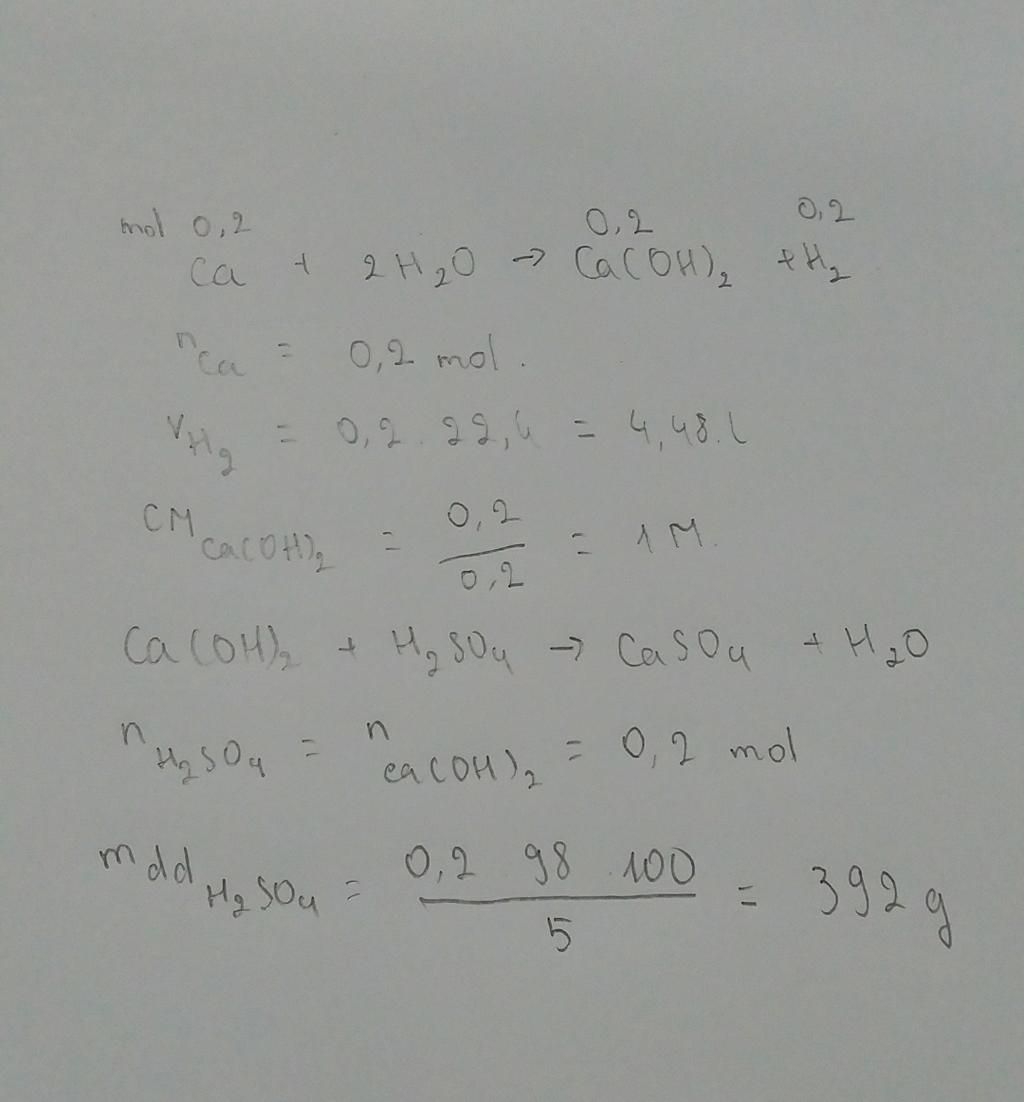 mol 0,2 0,2 0,2
Ca + 2H₂O → Ca(OH)₂ + H₂
nCa = 0,2 mol.
VH₂ = 0,2 . 22,4 = 4,48.l
CM Ca(OH)₂ = 0,2 / 0,2 = 1M.
Ca(OH)₂ + H₂SO₄ → CaSO₄ + H₂O
nH₂SO₄ = nCa(OH)₂ = 0,2 mol
mdd H₂SO₄ = 0,2 98 . 100 / 5 = 392g